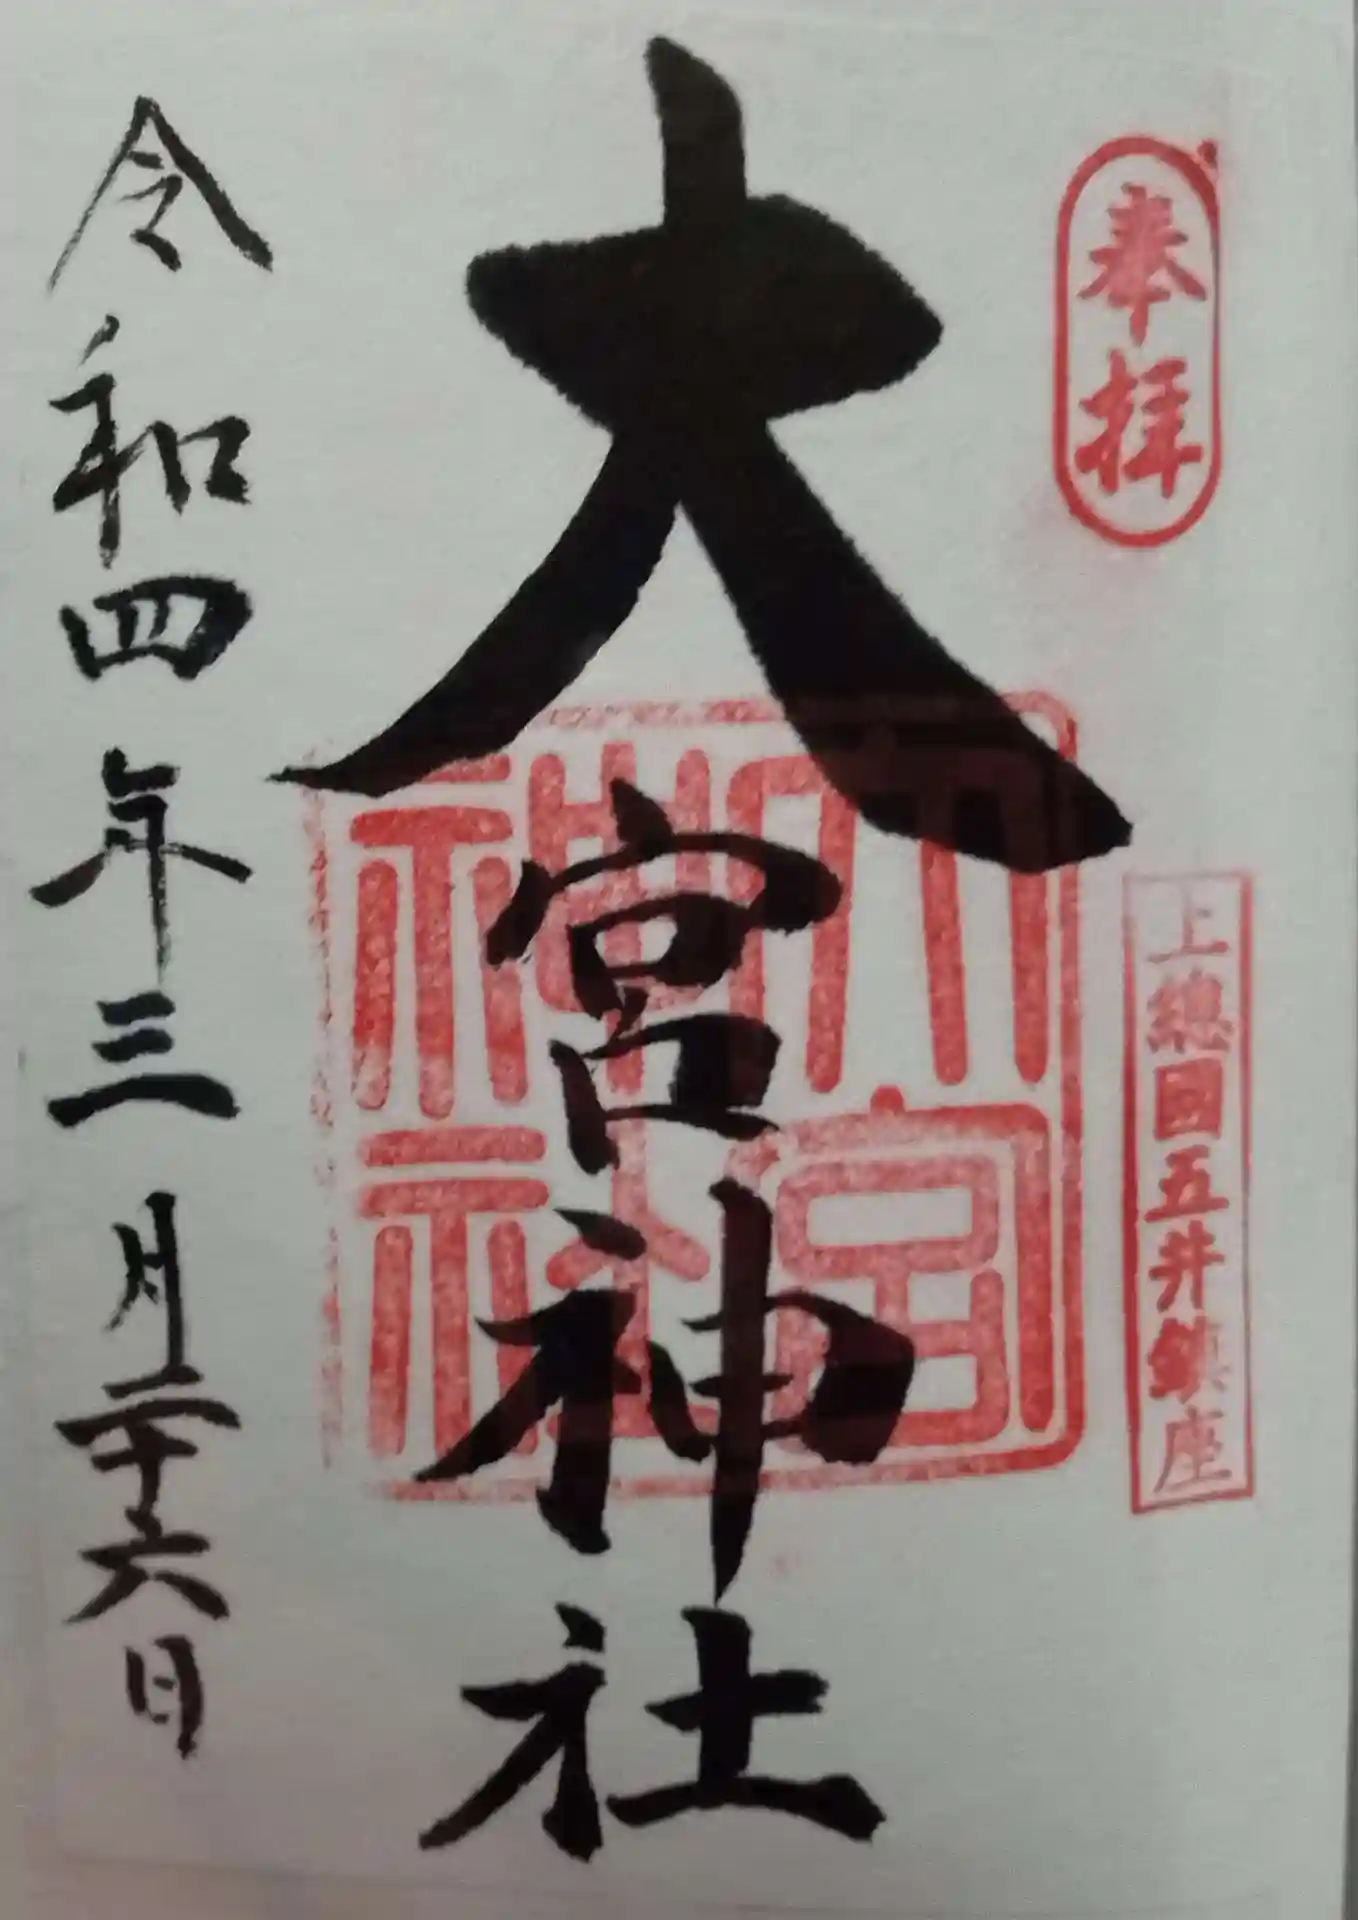 奉拝
上總國五井鎮座
大宮神社
大宮神社
令和四年三月二十六日